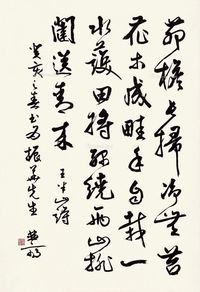 茆檐長掃淨無苔
花木成畦手自栽一
水護田將綠繞兩山排
闥送青來 王半山詩
癸亥之春書爲振華先生